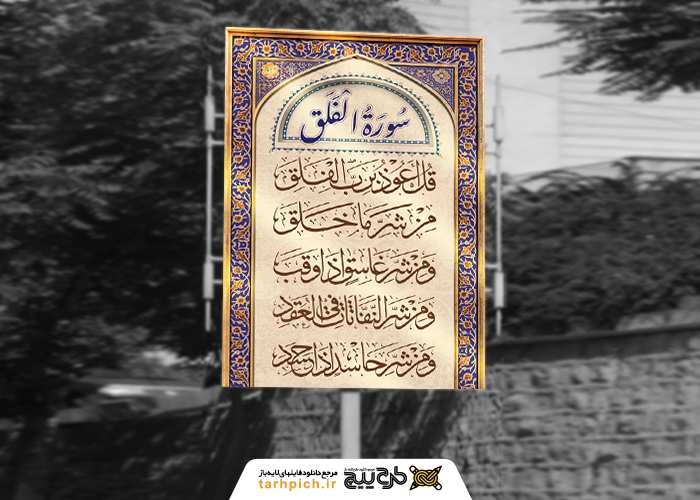 سُورَةُ الْفَلَق
قل اعوذ برب الفلق
من شر ما خلق
و من شر غاسق اذا وقب
و من شر النفاثات فی العقد
و من شر حاسد اذا حسد
مرجع دانلود فایلهای لایه باز
tarhpich.ir
طرح پیچ